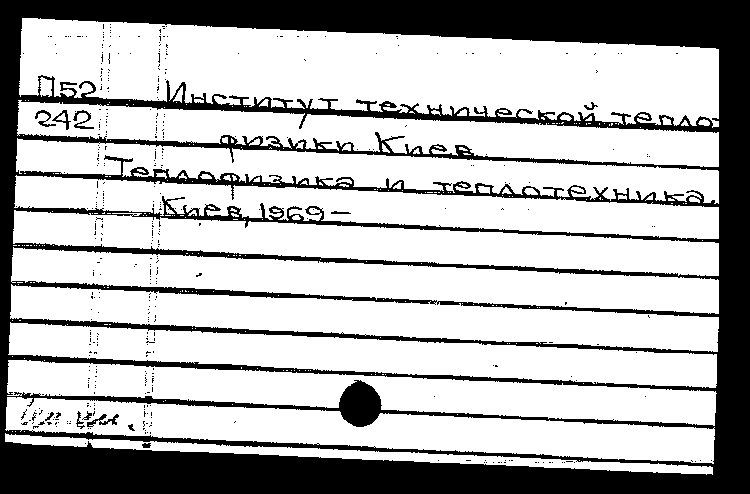 П52 Институт технической тепло-
242 физики Киев
Теплофизика и теплотехника.
Киев, 1969 –